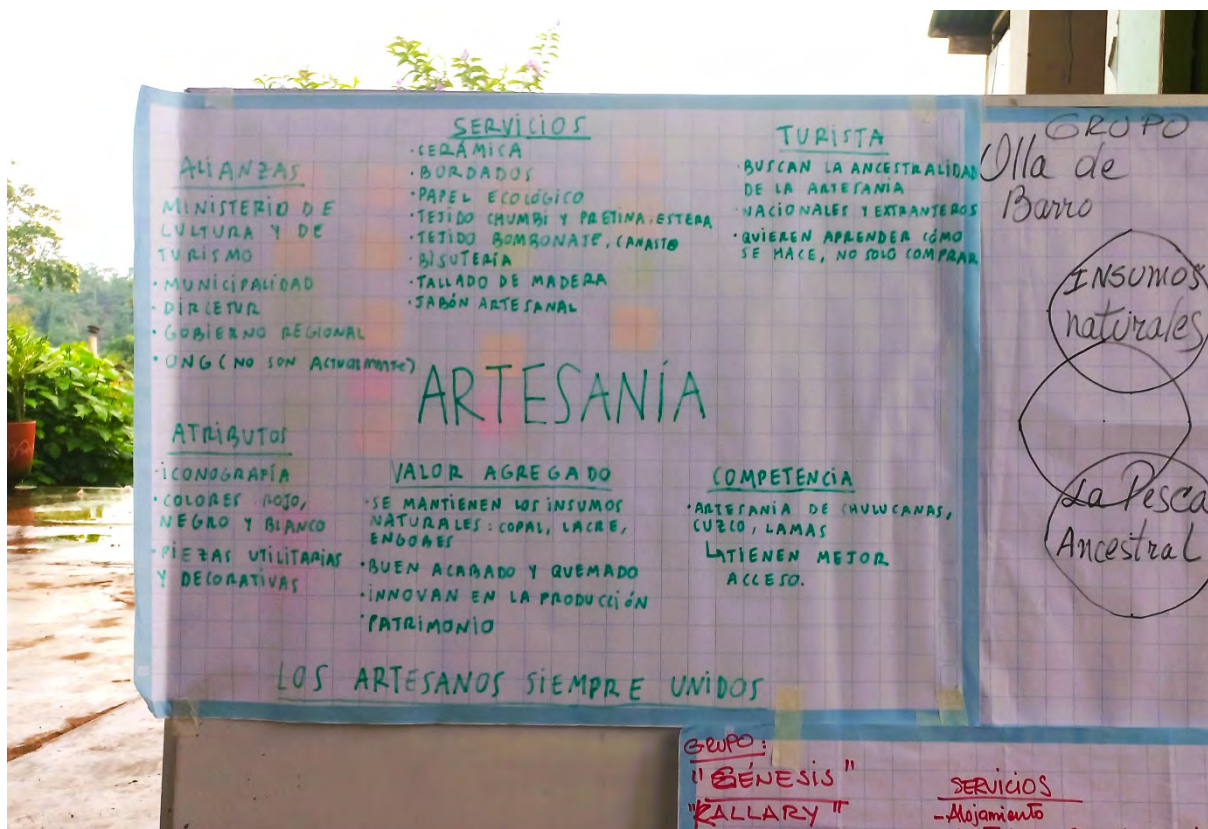 ALIANZAS
MINISTERIO DE
CULTURA Y DE
TURISMO
· MUNICIPALIDAD
· DIRCETUR
· GOBIERNO REGIONAL
· ONG (NO SON ACTUALMENTE)
SERVICIOS
· CERÁMICA
· BORDADOS
· PAPEL ECOLÓGICO
· TEJIDO CHUMBI Y PRETINA, ESTERA
· TEJIDO BOMBONAJE, CANASTO
· BISUTERÍA
· TALLADO DE MADERA
· JABÓN ARTESANAL
TURISTA
· BUSCAN LA ANCESTRALIDAD
DE LA ARTESANÍA
· NACIONALES Y EXTRANJEROS
· QUIEREN APRENDER CÓMO
SE HACE, NO SOLO COMPRAR
ARTESANÍA
ATRIBUTOS
· ICONOGRAFÍA
· COLORES ROJO,
NEGRO Y BLANCO
· PIEZAS UTILITARIAS
Y DECORATIVAS
VALOR AGREGADO
· SE MANTIENEN LOS INSUMOS
NATURALES: COPAL, LACRE,
ENGOBES
· BUEN ACABADO Y QUEMADO
· INNOVAN EN LA PRODUCCIÓN
· PATRIMONIO
COMPETENCIA
· ARTESANÍA DE CHULUCANAS,
CUZCO, LAMAS
↳ TIENEN MEJOR
ACCESO.
LOS ARTESANOS SIEMPRE UNIDOS
GRUPO
Olla de
Barro
INSUMOS
naturales
La Pesca
Ancestral
GRUPO:
"GÉNESIS"
"KALLARY"
SERVICIOS
- Alojamiento